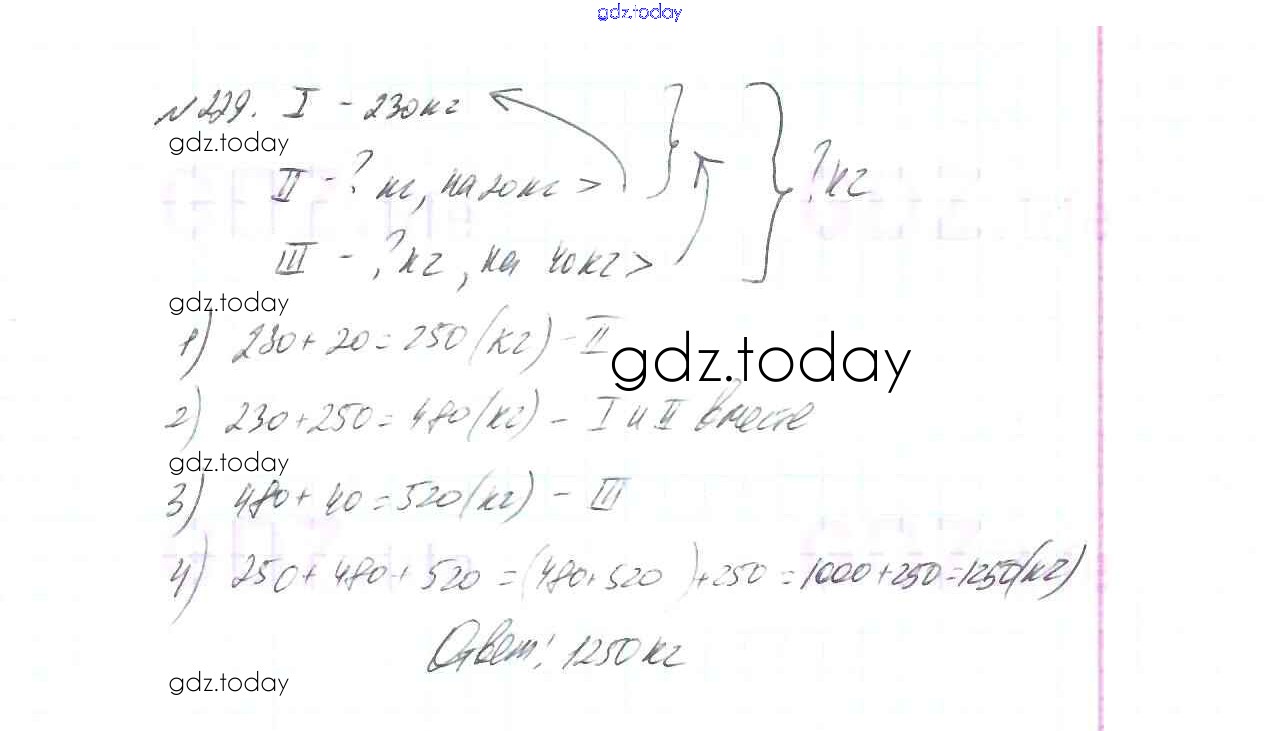 gdz.today
№229. I - 230кг
gdz.today
II - ? кг, на 20кг >
?кг
III - ?кг, на 40кг >
gdz.today
1) 230 + 20 = 250 (кг) - II
gdz.today
2) 230 + 250 = 480 (кг) - I и II вместе
gdz.today
3) 480 + 40 = 520 (кг) - III
4) 250 + 480 + 520 = (480 + 520) + 250 = 1000 + 250 = 1250 (кг)
Ответ: 1250 кг
gdz.today